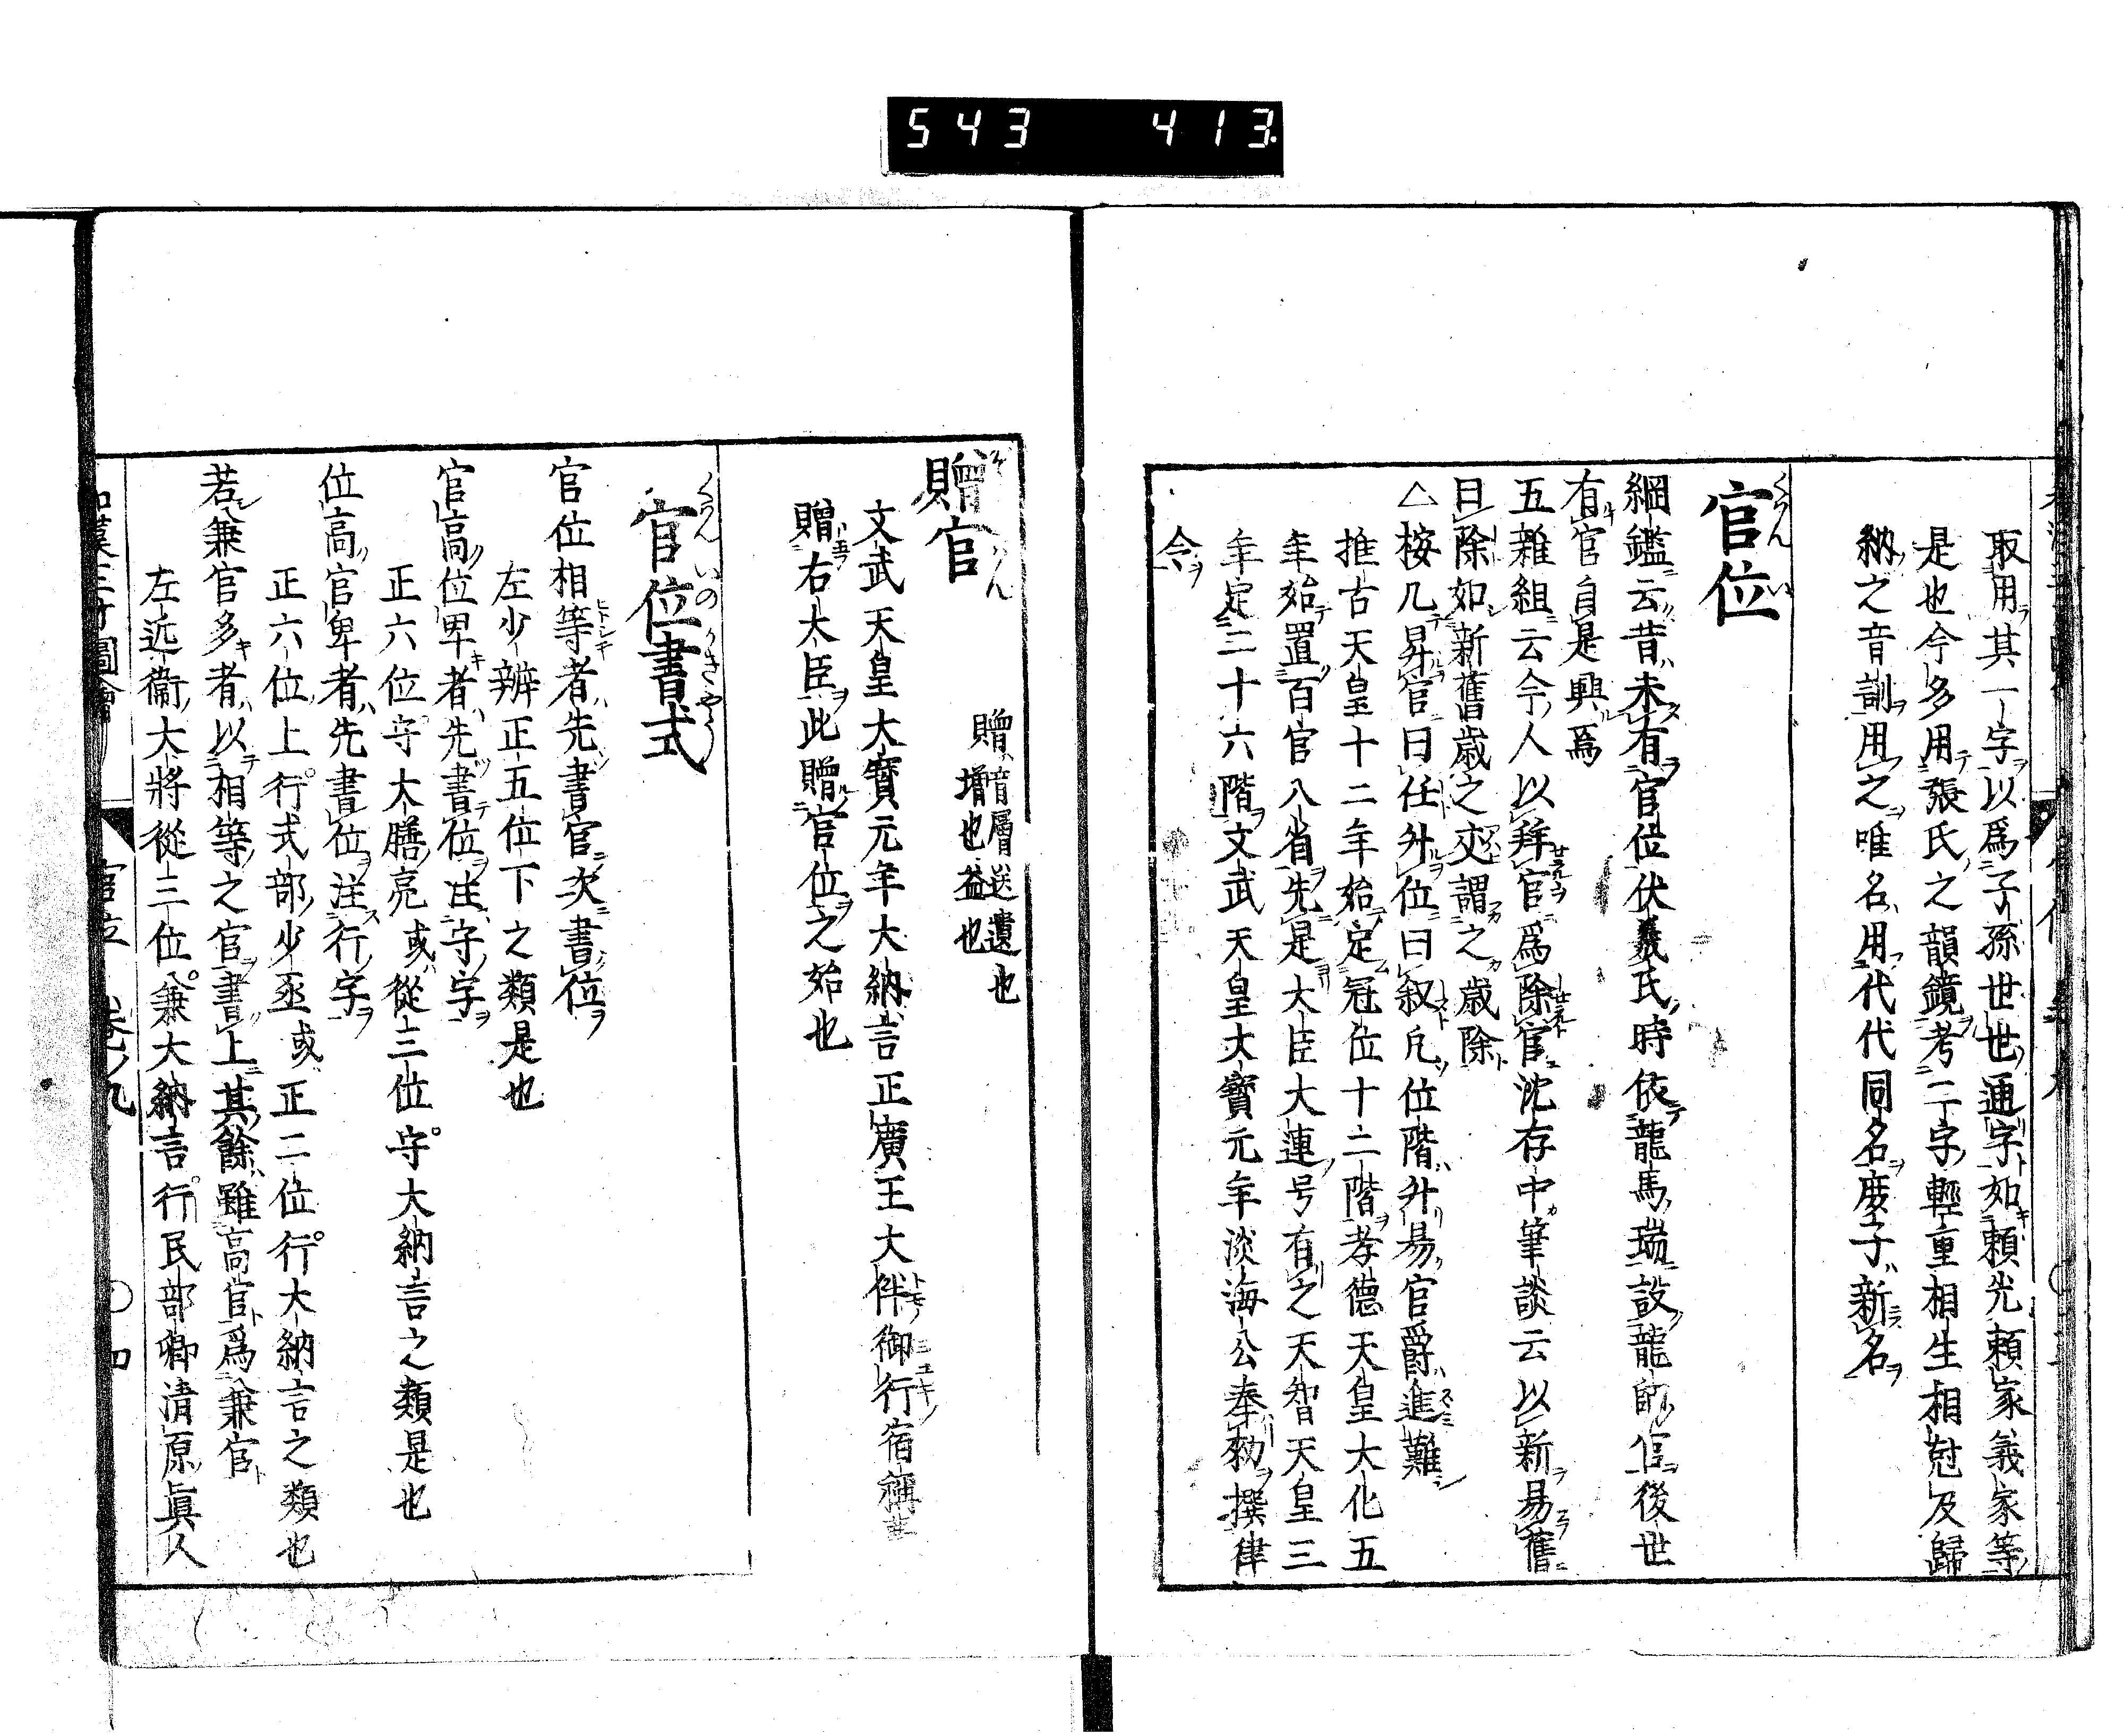 543 413
取用其一字以爲子孫世世通字如賴光賴家義家等
是也今多用張氏之韻鏡考二字輕重相生相尅及歸
納之音訓用之唯名用代代同名慶子新名
官位
くわん い
綱鑑云昔未有官位伏羲氏時依龍馬瑞設龍師官後世
有官自是興焉
五雜組云今人以拜官爲除官沈存中筆談云以新易舊
曰除如新舊歲之交謂之歲除
△按凡昇官曰任升位曰叙凡位階升易官爵進難
推古天皇十二年始定冠位十二階孝德天皇大化五
年始置百官八省先是大臣大連号有之天智天皇三
年定二十六階文武天皇大寶元年淡海公奉勅撰律
令
贈官
贈音層送遺也
増也益也
文武天皇大寶元年大納言正廣王大伴御行宿禰薨
贈右大臣此贈官位之始也
官位書式
くわん いの かきやう
官位相等者先書官次書位
左少辨正五位下之類是也
官高位卑者先書位注守字
正六位守大膳亮或從三位守大納言之類是也
位高官卑者先書位注行字
正六位上行式部少丞或正二位行大納言之類也
若兼官多者以相等之官書上其餘雖高官爲兼官
左近衞大將從三位兼大納言行民部卿清原眞人
和漢三才圖會 官位 卷ノ九 ○四